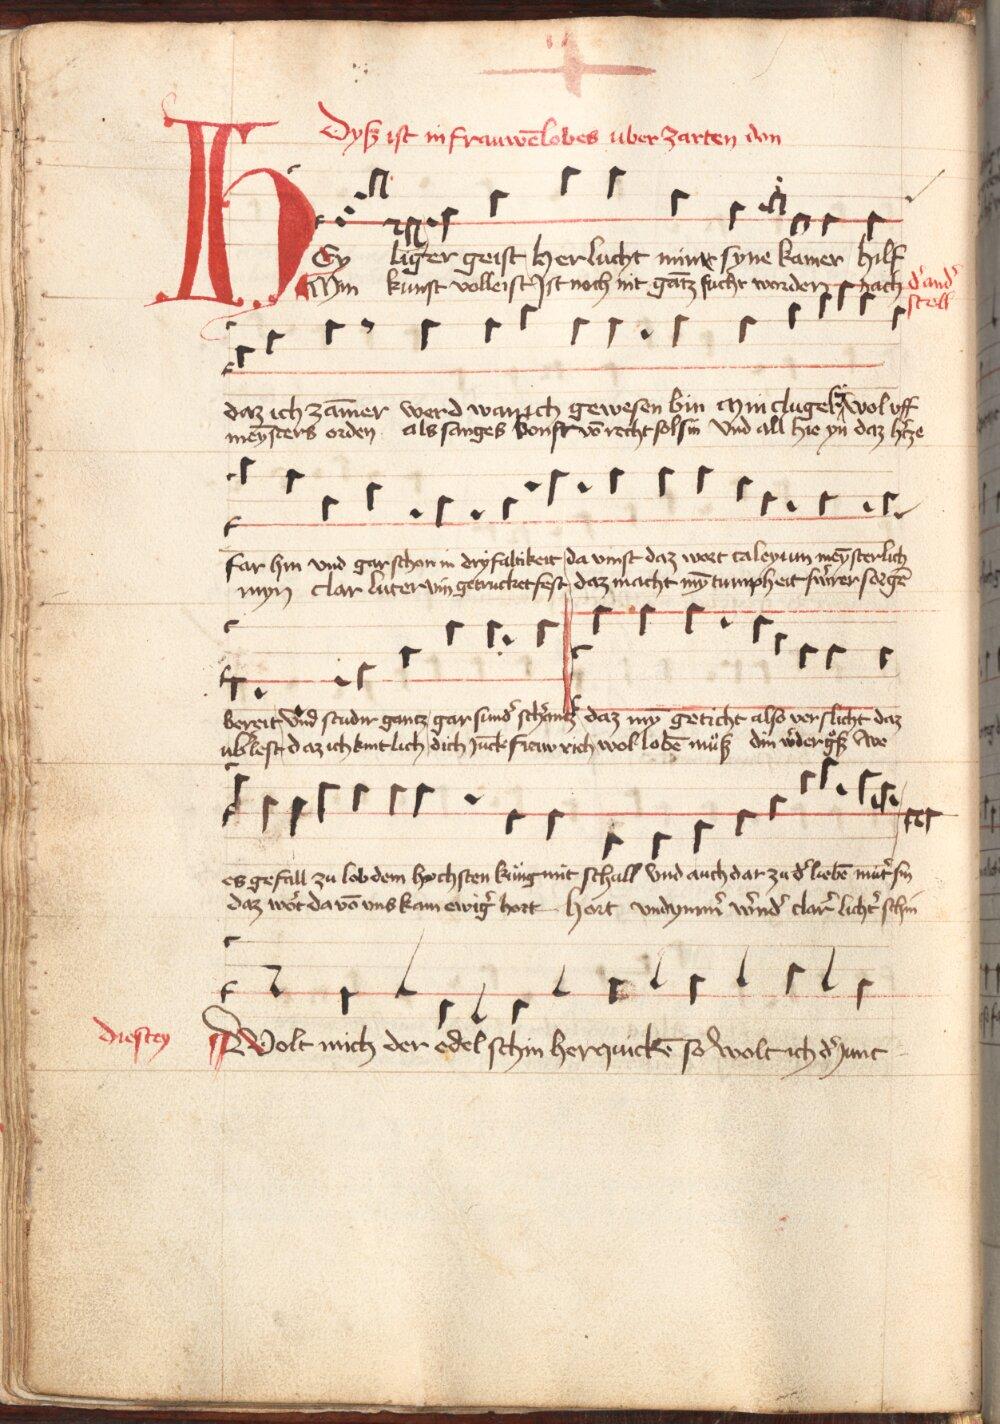 Dyß ist in frauwēlobes uber zarten don
HEy liger geist herlucht mine syne kamer hilf
Min kunst volleist Ist noch nit gātz fucht worden nach d' and'
stoll
daz ich zāmer werd wan ich gewesen bin Min cluge wol uff
meysters orden als sanges konst vō recht sol sin Und all hie yn daz h'tze
far hin und gar schon in dryfaltikeit da vinst daz wort meysterlich
myn clar luter vin getrucket fest daz macht mȳ tumpheit sorgē
bereit und studir gantz gar sund' daz mȳ geticht also verslicht daz
daz ich kintlich dich Junckfrauw rich wol lobē muß din Awe
es gefall zu lob dem hochsten kung mit schall Und auch dar zu d' liebē mut' sin
daz wort da vō uns kam ewig' hort Hort und clar' licht' schin
Die stey Wolt mich der edel schin herquickē so wolt ich d' Junc